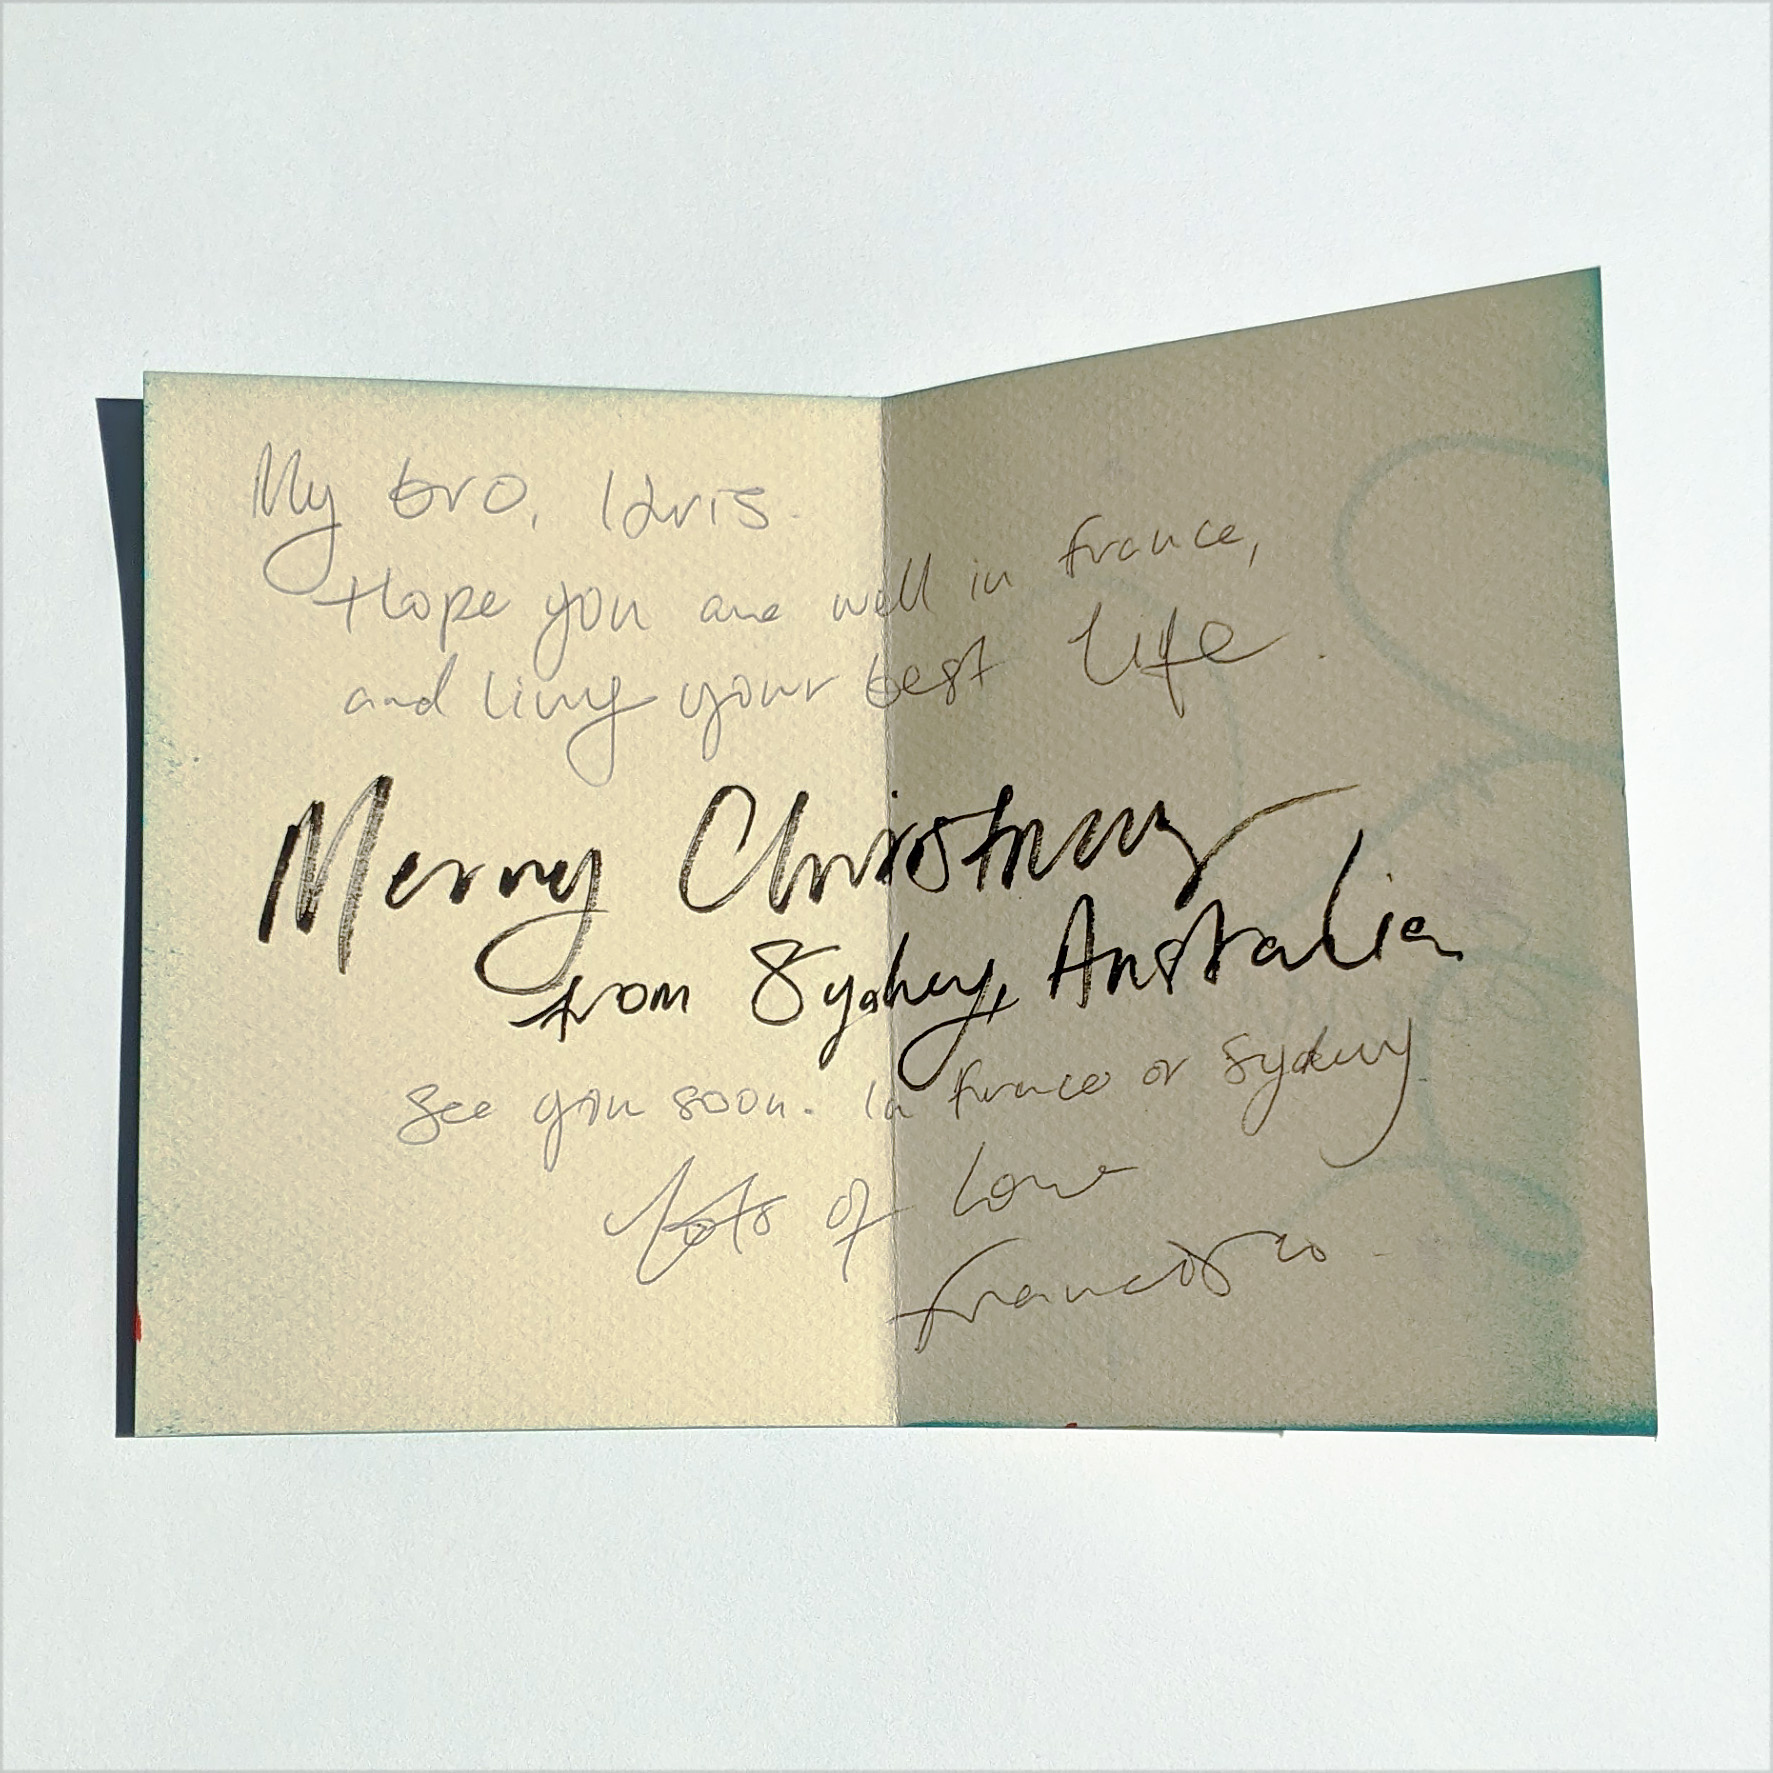 My bro, Idris.
Hope you are well in France,
and living your best life.
Merry Christmas
from Sydney, Australia
See you soon. In France or Sydney
Lots of Love
Francisco.